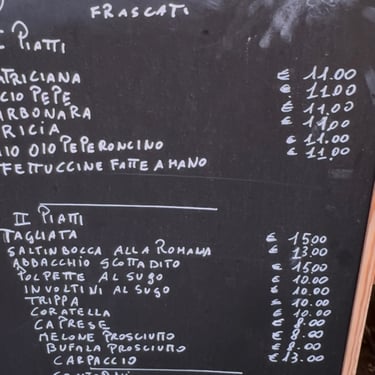 FRASCATI
I PIATTI
TRICIANA € 11.00
CIO PEPE € 11.00
RBONARA € 11.00
RICIA € 11.00
IO OIO PEPERONCINO € 11.00
FETTUCCINE FATTE A MANO € 11.00
II PIATTI
TAGLIATA € 15.00
SALTINBOCCA ALLA ROMANA € 13.00
ABBACCHIO SCOTTADITO € 15.00
POLPETTE AL SUGO € 10.00
INVOLTINI AL SUGO € 10.00
TRIPPA € 10.00
CORATELLA € 10.00
CAPRESE € 8.00
MELONE PROSCIUTTO € 8.00
BUFALA PROSCIUTTO € 8.00
CARPACCIO € 13.00